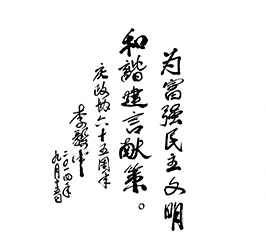 为富强民主文明
和谐建言献策。
庆政协六十五周年
李
二〇一四年
九月十五日